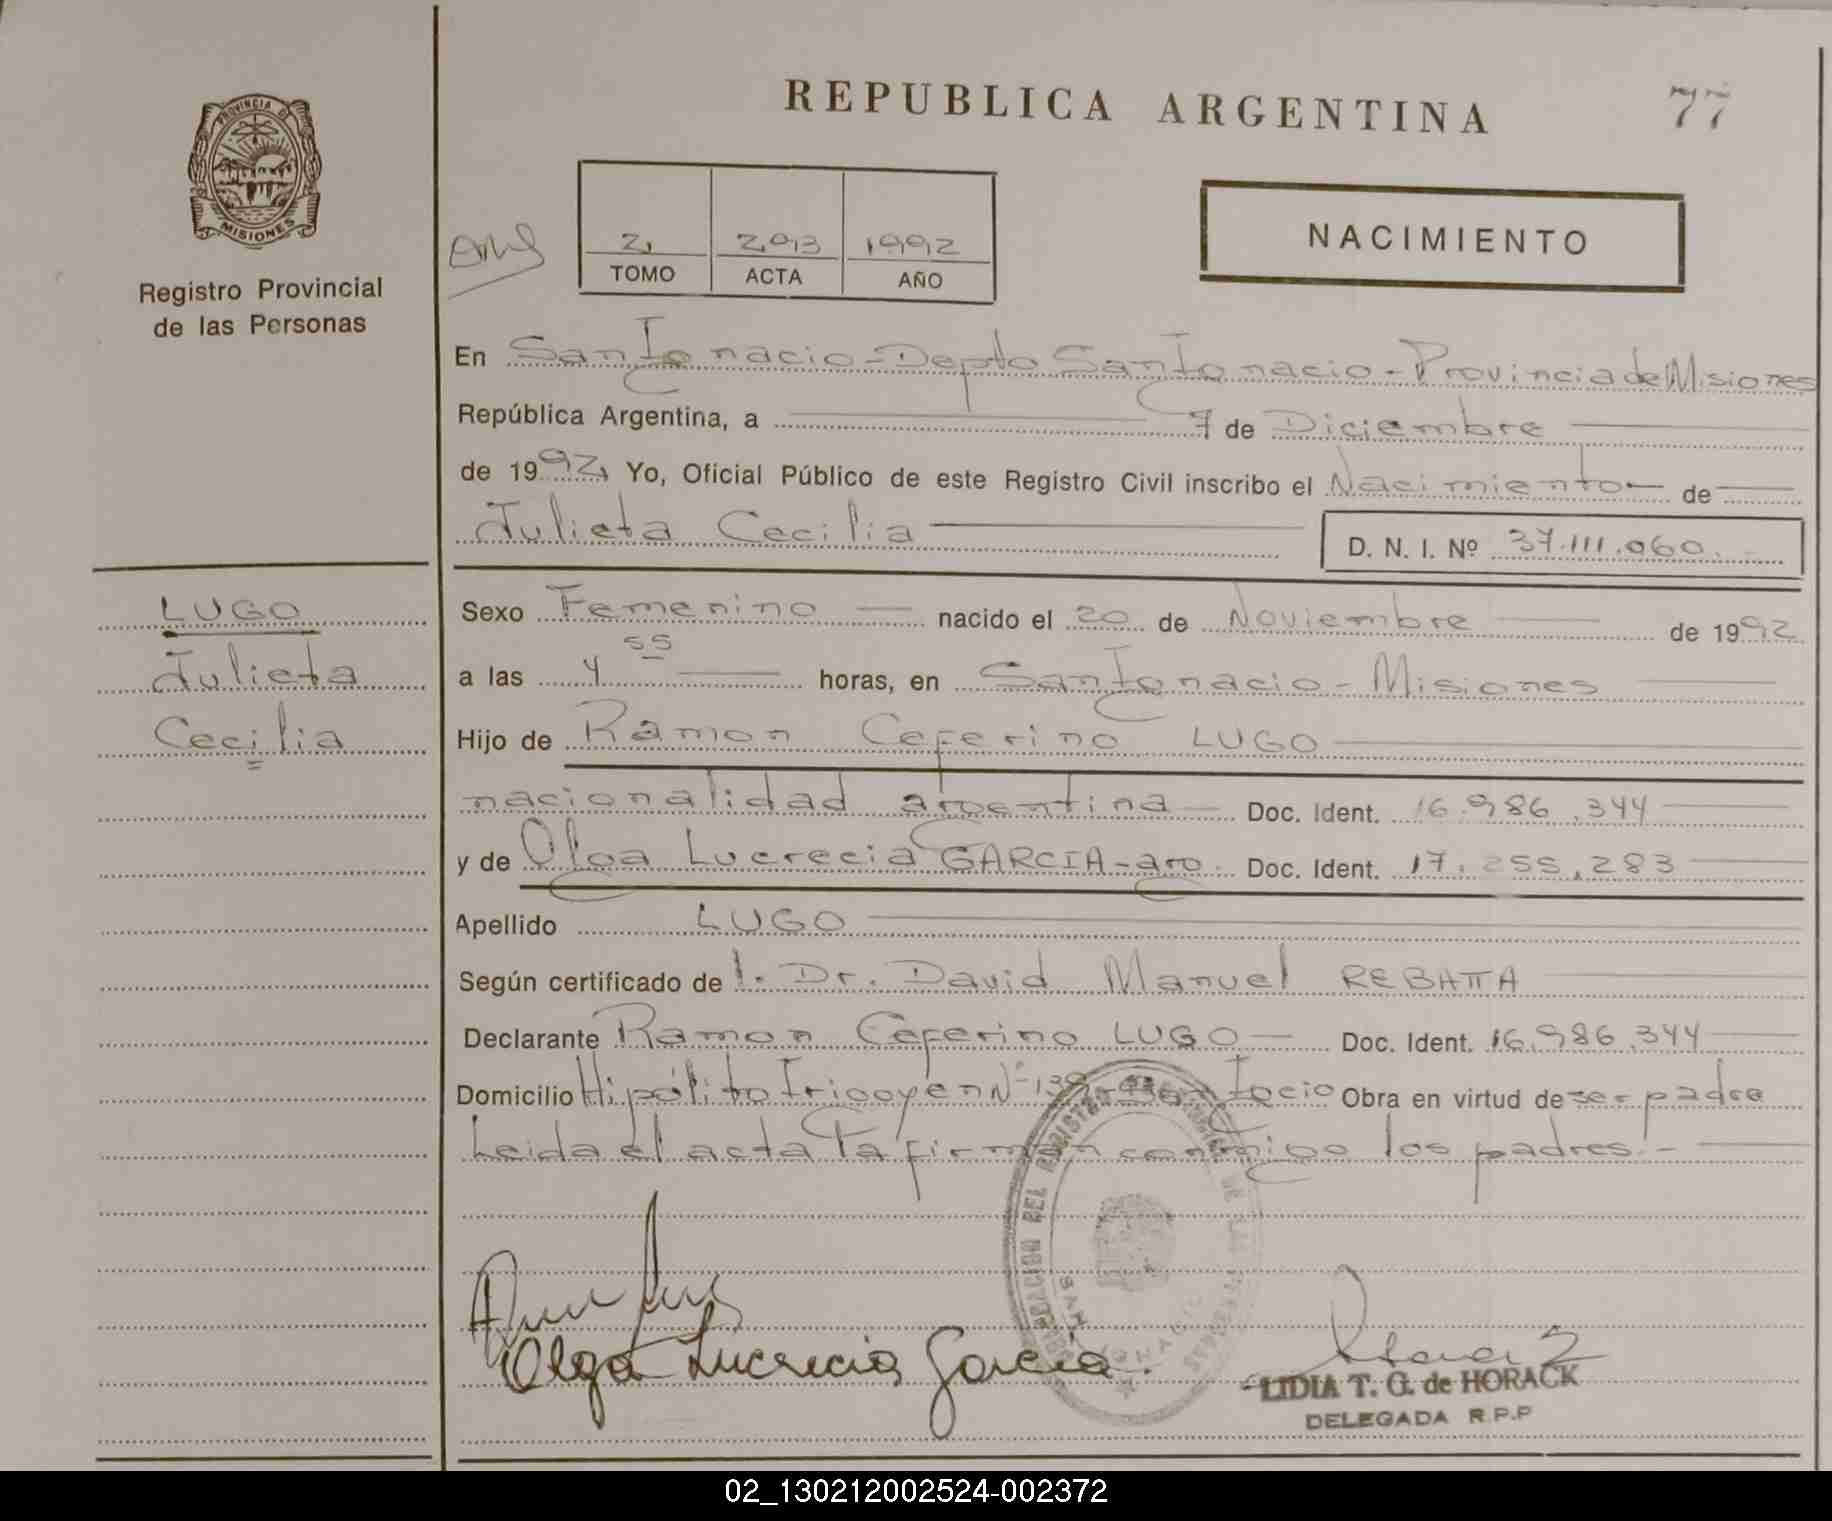 REPUBLICA ARGENTINA
77
PROVINCIA D
MISIONES
Registro Provincial
de las Personas
2 293 1992
TOMO ACTA AÑO
NACIMIENTO
En San Ignacio - Depto San Ignacio - Provincia de Misiones
República Argentina, a 7 de Diciembre
de 1992, Yo, Oficial Público de este Registro Civil inscribo el Nacimiento de
Julieta Cecilia D. N. I. Nº 37.111.060.
LUGO
Julieta
Cecilia
Sexo Femenino nacido el 20 de Noviembre de 1992
a las 4 55 horas, en San Ignacio - Misiones
Hijo de Ramon Ceferino LUGO
nacionalidad argentina Doc. Ident. 16.986.344
y de Olga Lucrecia GARCIA - arg. Doc. Ident. 17.255.283
Apellido LUGO
Según certificado de l. Dr. David Manuel REBATTA
Declarante Ramon Ceferino LUGO Doc. Ident. 16.986.344
Domicilio Hipólito Irigoyen Nº Igcio Obra en virtud de ser padre
Leida el acta la firman conmigo los padres.-
Olga Lucrecia Garcia.
LIDIA T. G. de HORACK
DELEGADA R.P.P
02_130212002524-002372